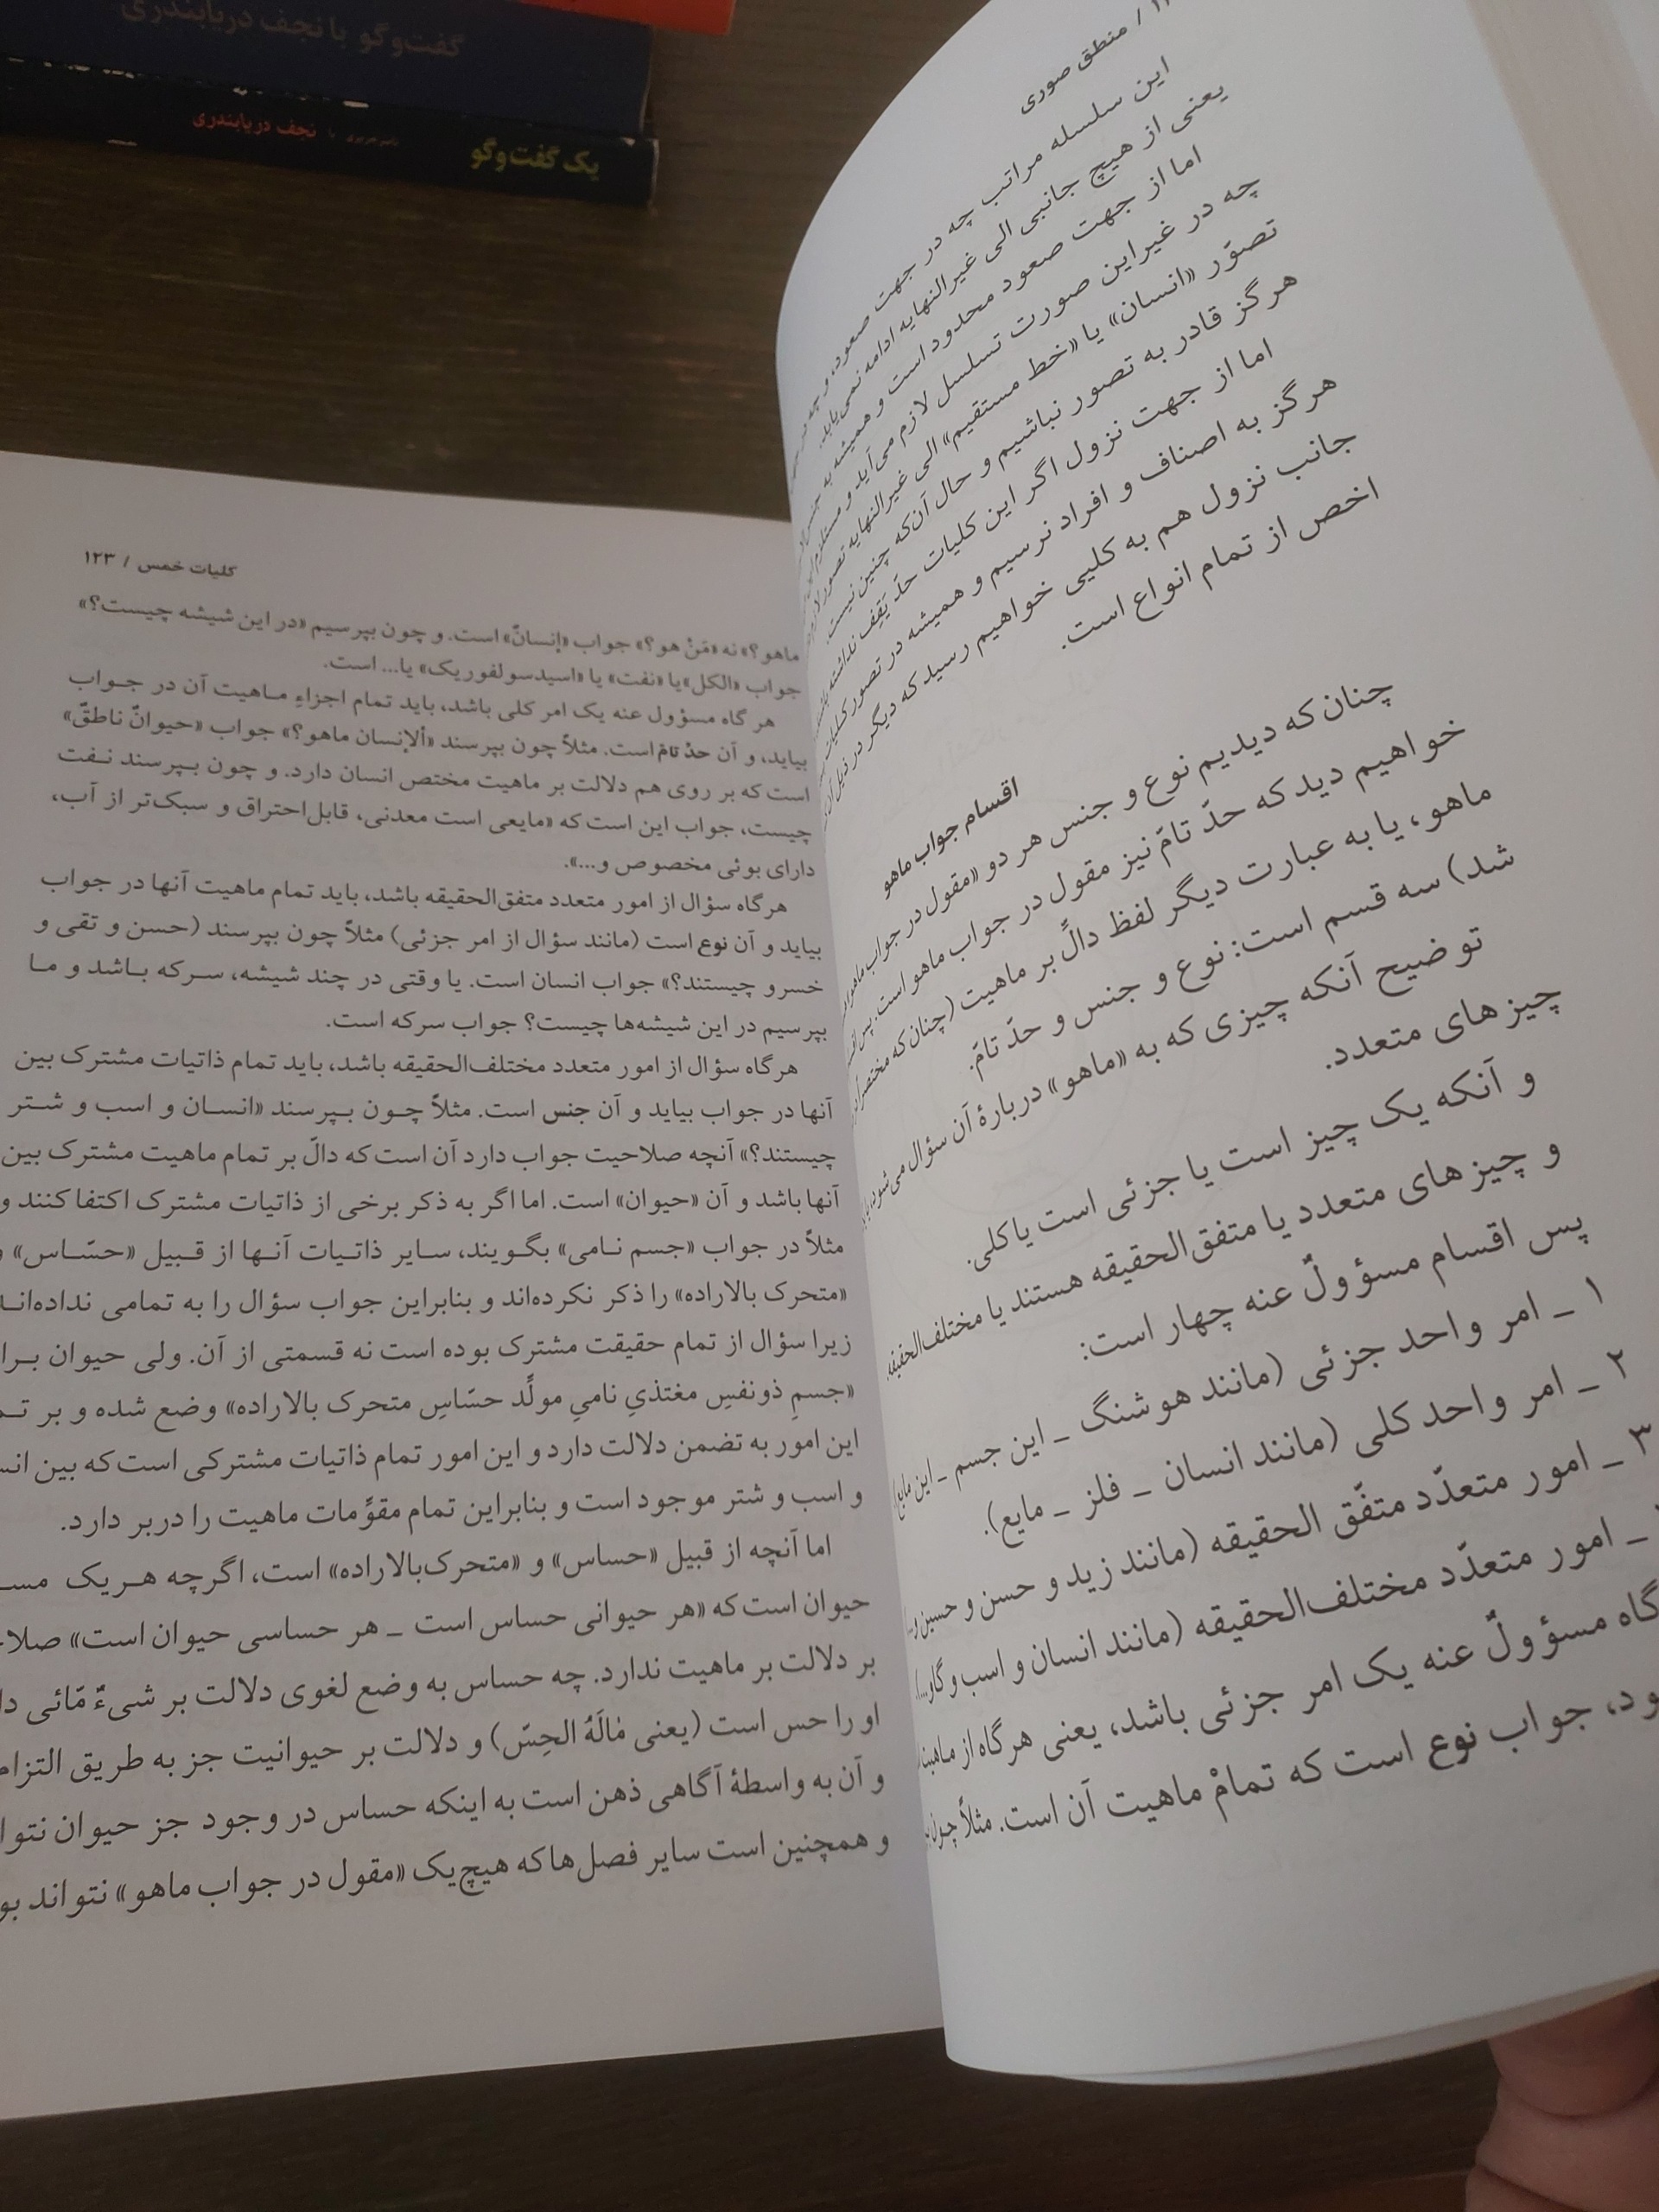 گفت‌وگو با نجف دریابندری
یک گفت‌وگو
با نجف دریابندری
/ منطق صوری
این سلسله مراتب چه در جهت صعود، و چه در
یعنی از هیچ جانبی الی غیرالنهایه ادامه نمی‌یابد.
اما از جهت صعود محدود است و همیشه به
چه در غیراین صورت تسلسل لازم می‌آید و مستلزم
تصوّر «انسان» یا «خط مستقیم» الی غیرالنهایه تصور
هرگز قادر به تصور نباشیم و حال آن‌که چنین نیست.
اما از جهت نزول اگر این کلیات حدّ یَقِف نداشته
هرگز به اصناف و افراد نرسیم و همیشه در تصور کلیات
جانب نزول هم به کلیی خواهیم رسید که دیگر در ذیل آن
اخص از تمام انواع است.
اقسام جواب ماهو
چنان‌که دیدیم نوع و جنس هر دو «مقول در جواب ماهو»
خواهیم دید که حدّ تامّ نیز مقول در جواب ماهو است. پس
ماهو، یا به عبارت دیگر لفظ دالّ بر ماهیت (چنان‌که مختصراً
شد) سه قسم است: نوع و جنس و حدّ تامّ.
توضیح آنکه چیزی که به «ماهو» دربارهٔ آن سؤال می‌شود،
چیزهای متعدد.
و آنکه یک چیز است یا جزئی است یا کلی.
و چیزهای متعدد یا متفق‌الحقیقه هستند یا مختلف‌الحقیقه
پس اقسام مسؤولٌ عنه چهار است:
۱ ـ امر واحد جزئی (مانند هوشنگ ـ این جسم ـ این مایع)
۲ ـ امر واحد کلی (مانند انسان ـ فلز ـ مایع).
۳ ـ امور متعدّد متفّق الحقیقه (مانند زید و حسن و حسین و...)
ـ امور متعدّد مختلف‌الحقیقه (مانند انسان و اسب و گاو...).
گاه مسؤولٌ عنه یک امر جزئی باشد، یعنی هرگاه از
جواب نوع است که تمامْ ماهیت آن است. مثلاً چون
کلیات خمس / ۱۲۳
ماهو؟» نه «مَنْ هو؟» جواب «إنسانٌ» است. و چون بپرسیم «در این شیشه چیست؟»
جواب «الکل» یا «نفت» یا «اسیدسولفوریک» یا... است.
هر گاه مسؤول عنه یک امر کلی باشد، باید تمام اجزاءِ مـاهیت آن در جـواب
بیاید، و آن حدّ تامّ است. مثلاً چون بپرسند «ألإنسان ماهو؟» جواب «حیوانٌ ناطقٌ»
است که بر روی هم دلالت بر ماهیت مختص انسان دارد. و چون بـپرسند نـفت
چیست، جواب این است که «مایعی است معدنی، قابل‌احتراق و سبک‌تر از آب،
دارای بوئی مخصوص و...».
هرگاه سؤال از امور متعدد متفق‌الحقیقه باشد، باید تمام ماهیت آنها در جواب
بیاید و آن نوع است (مانند سؤال از امر جزئی) مثلاً چون بپرسند (حسن و تقی و
خسرو چیستند؟» جواب انسان است. یا وقتی در چند شیشه، سـرکه بـاشد و مـا
بپرسیم در این شیشه‌ها چیست؟ جواب سرکه است.
هرگاه سؤال از امور متعدد مختلف‌الحقیقه باشد، باید تمام ذاتیات مشترک بین
آنها در جواب بیاید و آن جنس است. مثلاً چـون بـپرسند «انسـان و اسب و شـتر
چیستند؟» آنچه صلاحیت جواب دارد آن است که دالّ بر تمام ماهیت مشترک بین
آنها باشد و آن «حیوان» است. اما اگر به ذکر برخی از ذاتیات مشترک اکتفا کنند و
مثلاً در جواب «جسم نـامی» بگـویند، سـایر ذاتـیات آنـها از قـبیل «حسّـاس» و
«متحرک بالاراده» را ذکر نکرده‌اند و بنابراین جواب سؤال را به تمامی نداده‌انـد
زیرا سؤال از تمام حقیقت مشترک بوده است نه قسمتی از آن. ولی حیوان
«جسمِ ذونفسِ مغتذيِ ناميِ مولِّد حسّاسِ متحرک بالاراده» وضع شده و بر
این امور به تضمن دلالت دارد و این امور تمام ذاتیات مشترکی است که بین
و اسب و شتر موجود است و بنابراین تمام مقوِّمات ماهیت را دربر دارد.
اما آنچه از قبیل «حساس» و «متحرک‌بالاراده» است، اگرچه هـریک
حیوان است که «هر حیوانی حساس است ـ هر حساسی حیوان است»
بر دلالت بر ماهیت ندارد. چه حساس به وضع لغوی دلالت بر شیءٌ مّائی
او را حس است (یعنی مٰالَهُ الحِسّ) و دلالت بر حیوانیت جز به طریق
و آن به واسطهٔ آگاهی ذهن است به اینکه حساس در وجود جز حیوان
و همچنین است سایر فصل‌ها که هیچ‌یک «مقول در جواب ماهو» نتواند